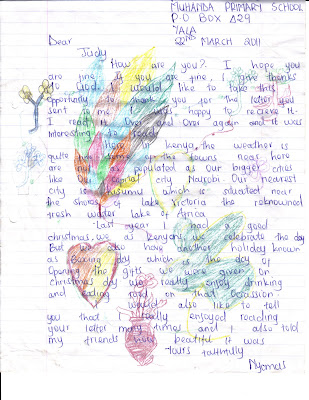 MUHANDA PRIMARY SCHOOL
P.O BOX 429
YALA
22ND MARCH 2011
Dear
Judy
How are you?. I hope you
are fine. If you are fine, I give thanks
to God. I would like to take this
opportunity to thank you for the letter you
sent to me. I was happy to recieve it.
I read it over and over again and it was
interesting to read.
Here in kenya, the weather is
quite some of the towns near here
are populated as our bigger cities
like capital city Nairobi. Our nearest
city is kisumu which is situated near
the shores of lake Victoria the renowned
fresh water lake of Africa
Last year I had a good
christmas. We as kenyans we celebrate the day
But we also another holiday known
as Boxing day which is the day of
opening the gifts we were given on
christmas day. We really enjoy drinking
and eating a lot on that occassion
I would also like to tell
you that I really enjoyed reading
your letter many times and I also told
my friends how beatiful it was
Yours faithfully